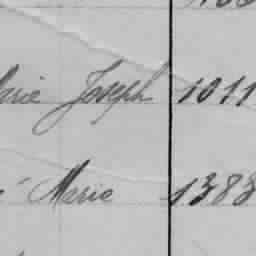 Marie Joseph 1011
Marie 1383